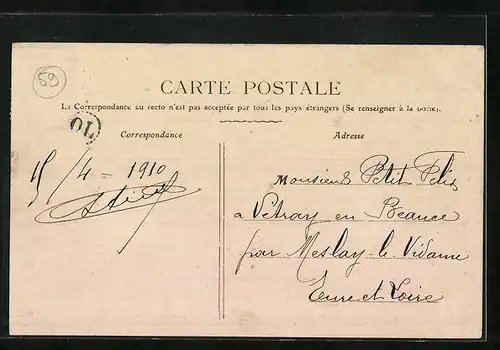 59
CARTE POSTALE
La Correspondance au recto n'est pas acceptée par tous les pays étrangers (Se renseigner à la Poste).
OL
Correspondance
Adresse
15/4 - 1910
Monsieur Petit Félix
à Vitray en Beauce
par Meslay-le Vidame
Eure et Loire